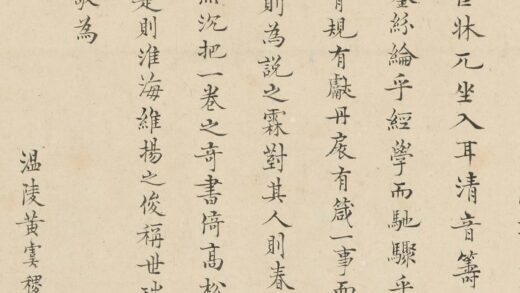 牀兀坐入耳清音籌
絲綸乎經學而馳驟乎
規有獻丹扆有箴一事而
則為説之霖對其人則春
沉把一卷之奇書倚髙松
則淮海維揚之俊稱世
為
温陵黄虞稷